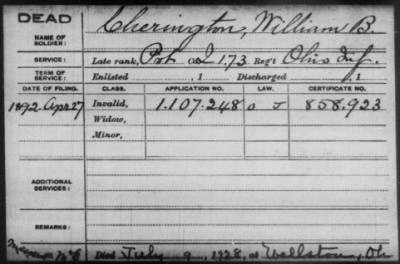 DEAD
NAME OF SOLDIER: Cherington, William B.
SERVICE: Late rank, Pvt Co. I 173 Reg't Ohio Inf.
TERM OF SERVICE: Enlisted , 1 Discharged , 1
DATE OF FILING. CLASS. APPLICATION NO. LAW. CERTIFICATE NO.
1892. Apr 27 Invalid, 1.107.248 858.923
Widow,
Minor,
ADDITIONAL SERVICES:
REMARKS:
Died July 9, 1928, at Wellston, Oh